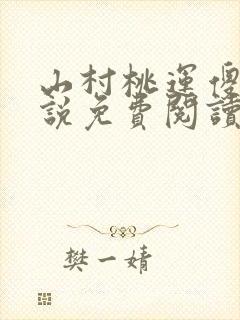 山村桃運傻
說免費閱讀
樊一婧